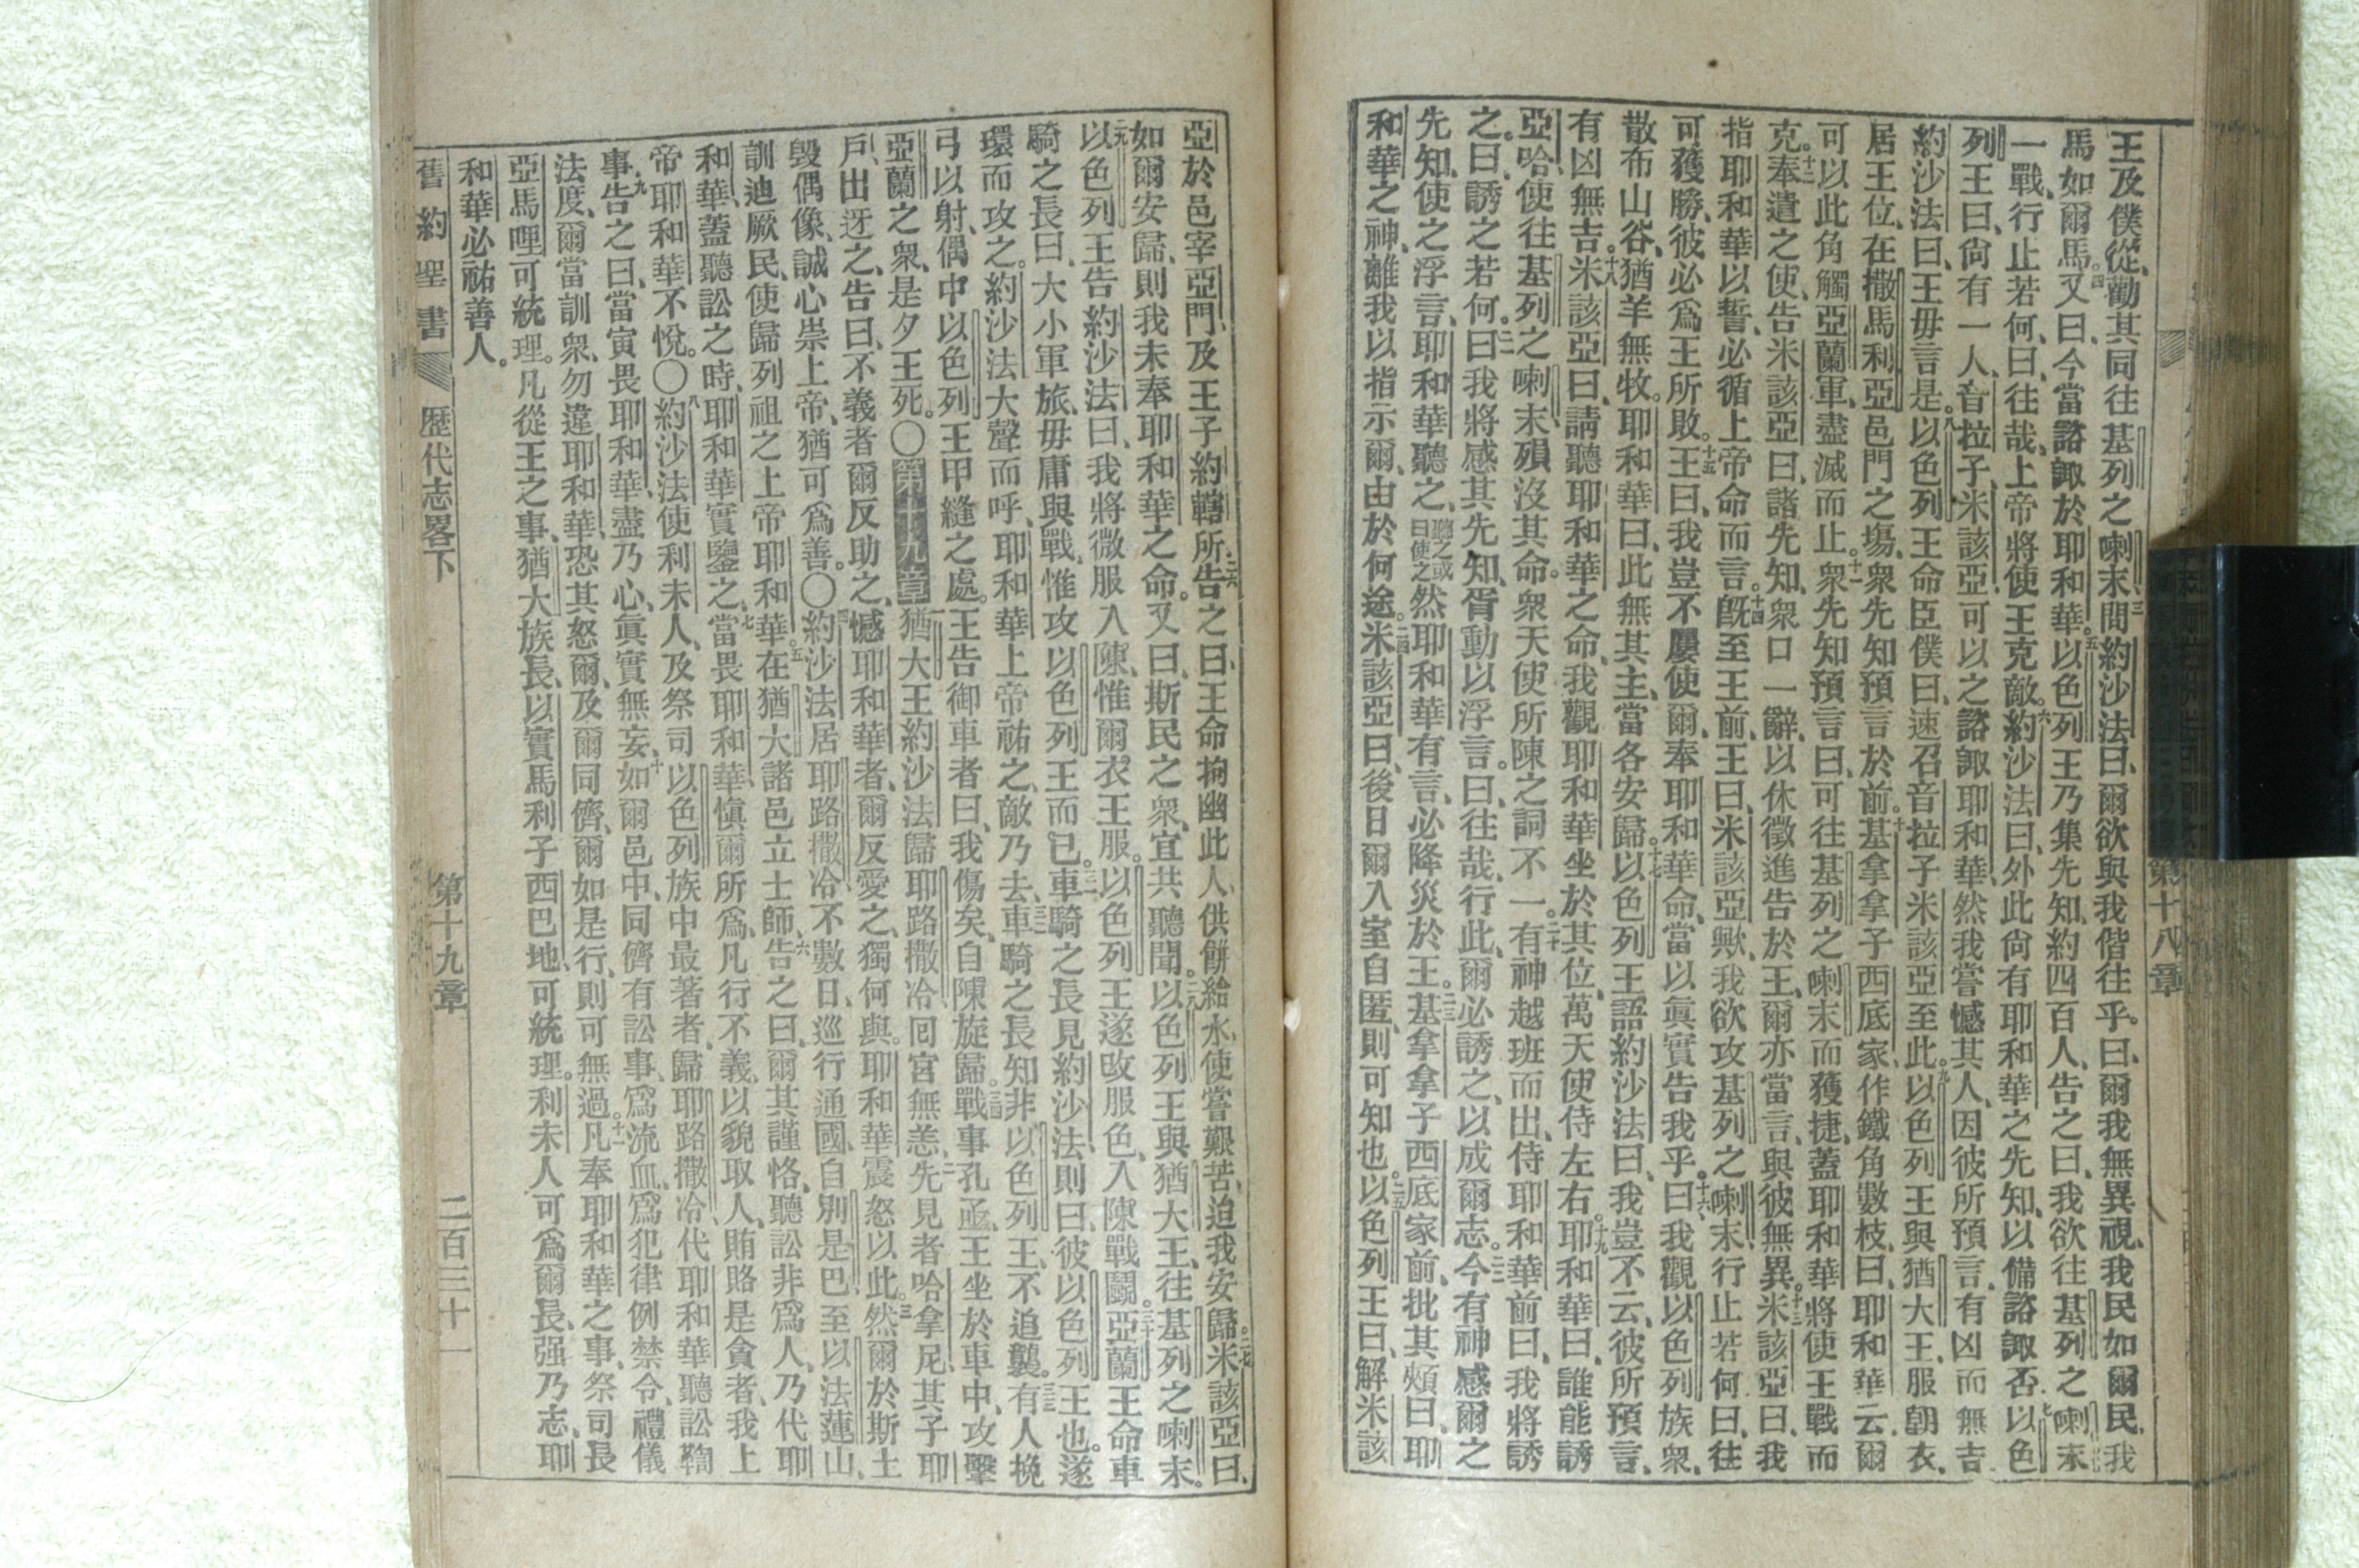 第十八章
王及僕從、勸其同往基列之喇末、三間約沙法曰、爾欲與我偕往乎。曰、爾我無異視、我民如爾民、我
馬如爾馬。四又曰、今當諮諏於耶和華。五以色列王乃集先知、約四百人、告之曰、我欲往基列之喇末
一戰、行止若何、曰、往哉、上帝將使王克敵。六約沙法曰、外此尙有耶和華之先知、以備諮諏否。七以色
列王曰、尙有一人、音拉子、米該亞、可以之諮諏耶和華、然我嘗憾其人、因彼所預言、有凶而無吉
約沙法曰、王毋言是。八以色列王命臣僕曰、速召音拉子米該亞至此。九以色列王與猶大王、服朝衣、
居王位、在撒馬利亞邑門之塲、衆先知預言於前。十基拿拿子西底家、作鐵角數枝、曰、耶和華云、爾
可以此角觸亞蘭軍、盡滅而止。十一衆先知預言曰、可往基列之喇末而獲捷、蓋耶和華將使王戰而
克。十二奉遣之使、告米該亞曰、諸先知、衆口一辭、以休徵進告於王、爾亦當言、與彼無異。十三米該亞曰、我
指耶和華以誓、必循上帝命而言。十四旣至王前、王曰、米該亞歟、我欲攻基列之喇末、行止若何、曰、往
可獲勝、彼必爲王所敗。十五王曰、我豈不屢使爾、奉耶和華命、當以眞實告我乎。十六曰、我觀以色列族衆、
散布山谷、猶羊無牧。耶和華曰、此無其主、當各安歸。十七以色列王語約沙法曰、我豈不云、彼所預言、
有凶無吉。十八米該亞曰、請聽耶和華之命、我觀耶和華坐於其位、萬天使侍左右。十九耶和華曰、誰能誘
亞哈、使往基列之喇末、殞沒其命。衆天使所陳之詞不一。二十有神越班而出、侍耶和華前曰、我將誘
之。曰、誘之若何。二一曰、我將感其先知、胥動以浮言。曰、往哉、行此、爾必誘之、以成爾志。二二今有神感爾之
先知、使之浮言、耶和華聽之、聽之或曰使之然耶和華有言、必降災於王。二三基拿拿子西底家前、批其頰曰、耶
和華之神、離我以指示爾、由於何途。二四米該亞曰、後日爾入室自匿、則可知也。二五以色列王曰、解米該
亞於邑宰亞門、及王子約轄所。二六告之曰、王命拘幽此人、供餅給水、使嘗艱苦、迨我安歸。二七米該亞曰、
如爾安歸、則我未奉耶和華之命。又曰、斯民之衆、宜共聽聞。二八以色列王與猶大王、往基列之喇末。
二九以色列王告約沙法曰、我將微服入陳、惟爾衣王服。以色列王遂改服色、入陳戰鬭。三十亞蘭王命車
騎之長曰、大小軍旅、毋庸與戰、惟攻以色列王而已。三一車騎之長見約沙法、則曰、彼以色列王也。遂
環而攻之。約沙法大聲而呼、耶和華上帝祐之、敵乃去。三二車騎之長知非以色列王、不追襲。三三有人挽
弓以射、偶中以色列王甲縫之處。王告御車者曰、我傷矣、自陳旋歸。三四戰事孔亟、王坐於車中、攻擊
亞蘭之衆、是夕王死。〇第十九章猶大王約沙法歸耶路撒冷、囘宮無恙。二先見者哈拿尼、其子耶
戶、出迓之、告曰、不義者爾反助之、憾耶和華者、爾反愛之、獨何與。耶和華震怒以此。三然爾於斯土
毀偶像、誠心崇上帝、猶可爲善。〇四約沙法居耶路撒冷不數日、巡行通國、自別是巴至以法蓮山、
訓迪厥民、使歸列祖之上帝耶和華。五在猶大諸邑立士師、六告之曰、爾其謹恪、聽訟非爲人、乃代耶
和華、蓋聽訟之時、耶和華實鑒之、七當畏耶和華、愼爾所爲、凡行不義、以貌取人、賄賂是貪者、我上
帝耶和華不悅。〇八約沙法使利未人、及祭司、以色列族中最著者、歸耶路撒冷、代耶和華聽訟鞫
事、九告之曰、當寅畏耶和華、盡乃心、眞實無妄、十如爾邑中、同儕有訟事、爲流血、爲犯律例禁令、禮儀
法度、爾當訓衆、勿違耶和華、恐其怒爾、及爾同儕、爾如是行、則可無過。十一凡奉耶和華之事、祭司長
亞馬哩可統理。凡從王之事、猶大族長、以實馬利子西巴地、可統理。利未人可爲爾長、强乃志、耶
和華必祐善人。
舊約聖書 歷代志畧下 第十九章 二百三十一